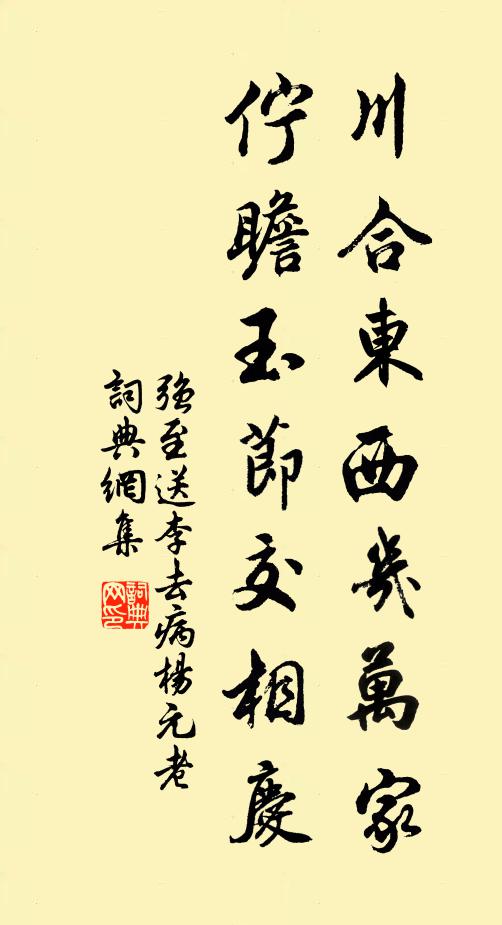 川合東西幾萬家
佇瞻玉節交相慶
強至送李去病楊元老
詞典網集
詞典
网印